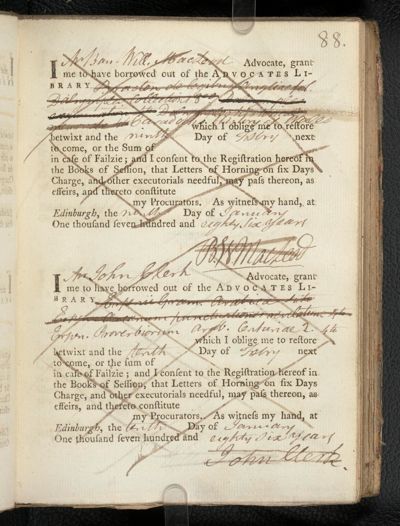 88.
I Mr Ban. Will. Macleod Advocate, grant
me to have borrowed out of the ADVOCATES LI-
BRARY
which I oblige me to restore
betwixt and the ninth Day of next
to come, or the Sum of
in case of Failzie; and I consent to the Registration hereof in
the Books of Session, that Letters of Horning on six Days
Charge, and other executorials needful, may pass thereon, as
effeirs, and thereto constitute
my Procurators. As witness my hand, at
Edinburgh, the ninth Day of January
One thousand seven hundred and eighty six years
B. W. Macleod
I Mr John Clerk Advocate, grant
me to have borrowed out of the ADVOCATES LI-
BRARY Gram. Arabica 4to
Erpen. Proverbiorum Arab. Centuriae 2. 4to
which I oblige me to restore
betwixt and the tenth Day of next
to come, or the sum of
in case of Failzie; and I consent to the Registration hereof in
the Books of Session, that Letters of Horning on six Days
Charge, and other executorials needful, may pass thereon, as
effeirs, and thereto constitute
my Procurators. As witness my hand, at
Edinburgh, the tenth Day of January
One thousand seven hundred and eighty six years
John Clerk.